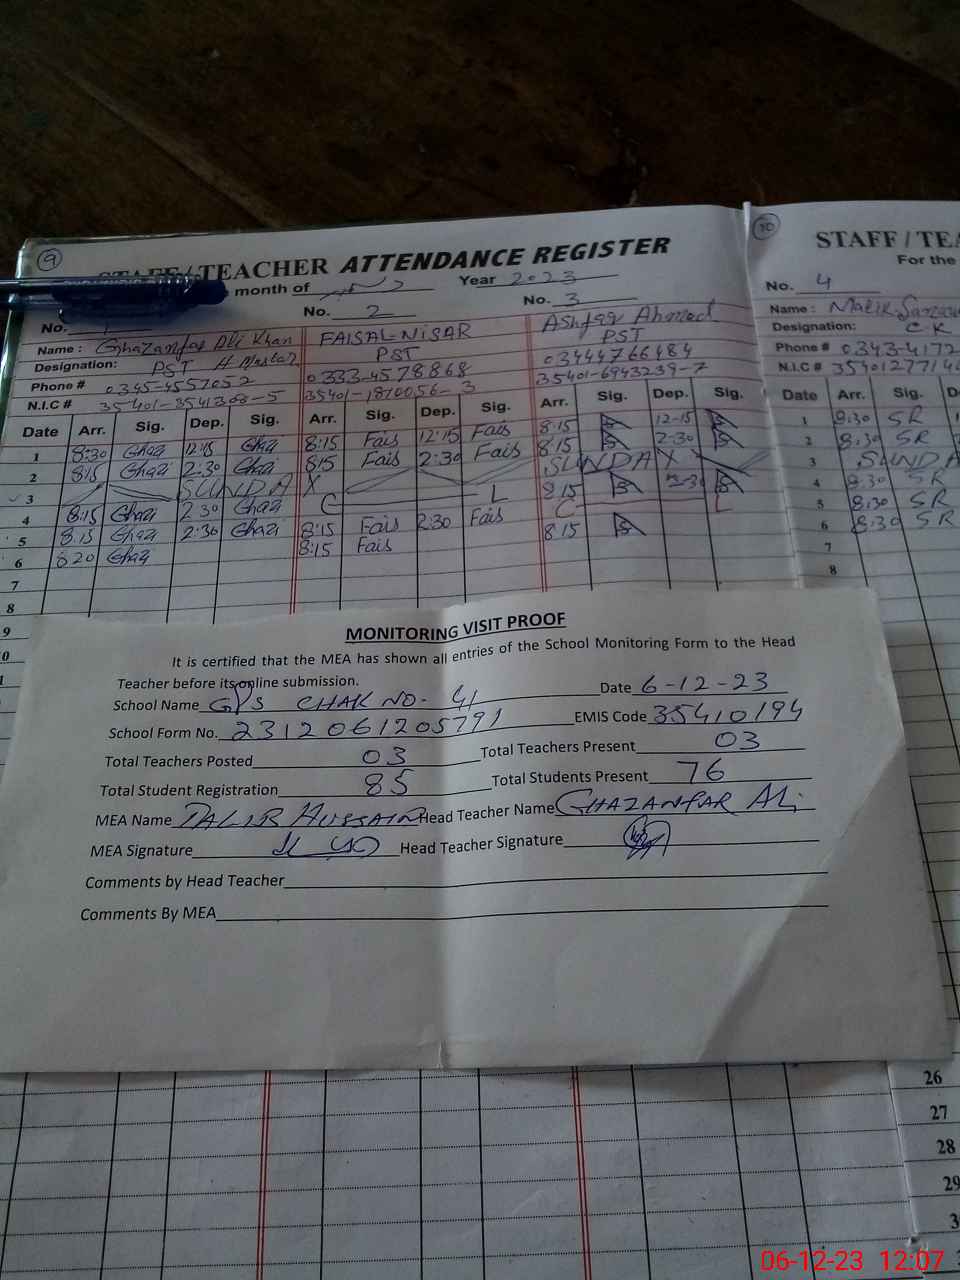 9
STAFF / TEACHER ATTENDANCE REGISTER
month of Year 2023
No. 1 No. 2 No. 3
Name : Ghazanfar Ali Khan FAISAL NISAR Ashfaq Ahmed
Designation: PST H Master PST PST
Phone # 0345-4557052 0333-4578868 03444766484
N.I.C # 35401-3541368-5 35401-1870056-3 35401-6943239-7
Date Arr. Sig. Dep. Sig. Arr. Sig. Dep. Sig. Arr. Sig. Dep. Sig.
1 8:30 Ghazi 12:15 Ghazi 8:15 Fais 12:15 Fais 8:15 12-15
2 8:15 Ghazi 2:30 Ghazi 8:15 Fais 2:30 Fais 8:15 2-30
3 SUNDAY SUNDAY
4 8:15 Ghazi 2:30 Ghazi C L 8:15 2-30
5 8:15 Ghazi 2:30 Ghazi 8:15 Fais 2:30 Fais C L
6 8:20 Ghazi 8:15 Fais 8:15
7
8
9
10
STAFF / TEA
For the
No. 4
Name : Malik
Designation: C K
Phone # 0343-4172
N.I.C # 354012771
Date Arr. Sig. D
1 8:30 SR
2 8:30 SR
3 SUNDA
4 8:30 SR
5 8:30 SR
6 8:30 SR
7
8
MONITORING VISIT PROOF
It is certified that the MEA has shown all entries of the School Monitoring Form to the Head
Teacher before its online submission.
School Name GPS CHAK NO- 41 Date 6-12-23
School Form No. 2312061205791 EMIS Code 35410194
Total Teachers Posted 03 Total Teachers Present 03
Total Student Registration 85 Total Students Present 76
MEA Name TALIB HUSSAIN Head Teacher Name GHAZANFAR Ali
MEA Signature Head Teacher Signature
Comments by Head Teacher
Comments By MEA
26
27
28
29
3
06-12-23 12:07